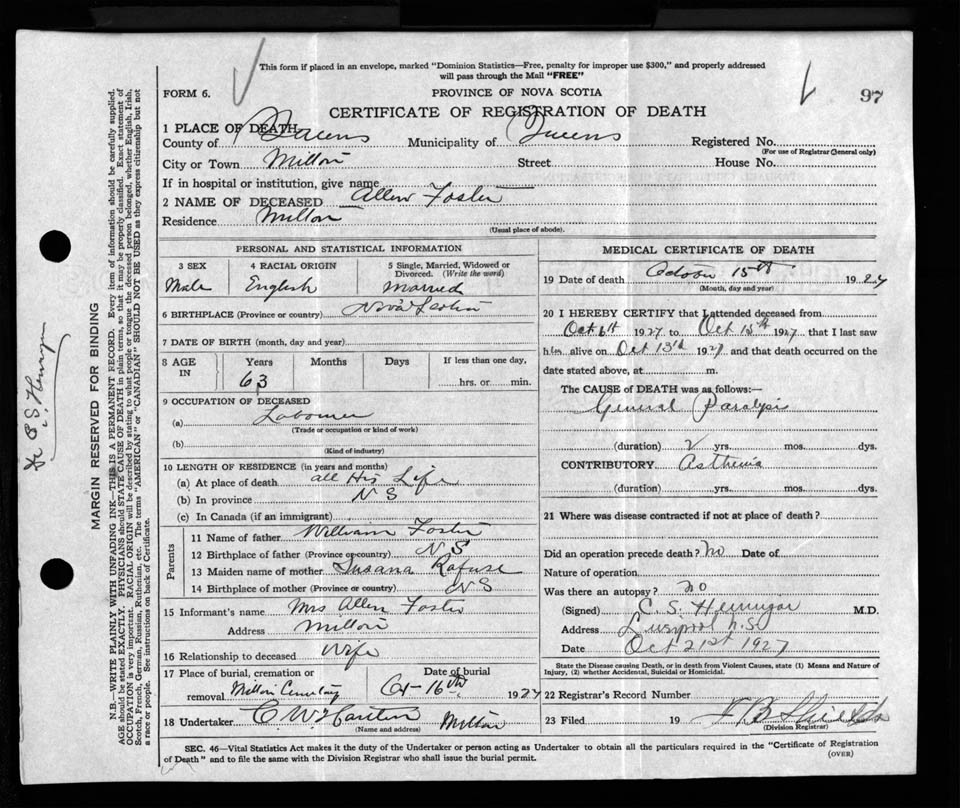 This form if placed in an envelope, marked "Dominion Statistics—Free, penalty for improper use $300," and properly addressed
will pass through the Mail "FREE"
FORM 6.
PROVINCE OF NOVA SCOTIA
97
CERTIFICATE OF REGISTRATION OF DEATH
1 PLACE OF DEATH
County of Queens Municipality of Queens Registered No.
(For use of Registrar General only)
City or Town Milton Street House No.
If in hospital or institution, give name
2 NAME OF DECEASED Allen Foster
Residence Milton
(Usual place of abode).
PERSONAL AND STATISTICAL INFORMATION
3 SEX 4 RACIAL ORIGIN 5 Single, Married, Widowed or
Divorced. (Write the word)
Male English Married
6 BIRTHPLACE (Province or country) Nova Scotia
7 DATE OF BIRTH (month, day and year)
8 AGE IN Years Months Days If less than one day,
63 hrs. or min.
9 OCCUPATION OF DECEASED
(a) Labourer
(Trade or occupation or kind of work)
(b)
(Kind of industry)
10 LENGTH OF RESIDENCE (in years and months)
(a) At place of death all His Life
(b) In province N S
(c) In Canada (if an immigrant)
Parents
11 Name of father William Foster
12 Birthplace of father (Province or country) N S
13 Maiden name of mother Susana Rafuse
14 Birthplace of mother (Province or country) N S
15 Informant's name Mrs Allen Foster
Address Milton
16 Relationship to deceased Wife
17 Place of burial, cremation or Date of burial
removal Milton Cemetery Oct 16th 1927
18 Undertaker Milton
(Name and address)
MEDICAL CERTIFICATE OF DEATH
19 Date of death 15th 1927
(Month, day and year)
20 I HEREBY CERTIFY that I attended deceased from
Oct 6th 1927 to Oct 15th 1927 that I last saw
him alive on Oct 13th 1927 and that death occurred on the
date stated above, at m.
The CAUSE of DEATH was as follows:—
General Paralysis
(duration) 2 yrs. mos. dys.
CONTRIBUTORY Asthenia
(duration) yrs. mos. dys.
21 Where was disease contracted if not at place of death?
Did an operation precede death? No Date of
Nature of operation
Was there an autopsy? no
(Signed) C. S. Hennigar M.D.
Address Liverpool N.S.
Date Oct 21st 1927
State the Disease causing Death, or in death from Violent Causes, state (1) Means and Nature of
Injury, (2) whether Accidental, Suicidal or Homicidal.
22 Registrar's Record Number
23 Filed 19
(Division Registrar)
SEC. 46—Vital Statistics Act makes it the duty of the Undertaker or person acting as Undertaker to obtain all the particulars required in the "Certificate of Registration
of Death" and to file the same with the Division Registrar who shall issue the burial permit.
(OVER)
MARGIN RESERVED FOR BINDING
N.B.—WRITE PLAINLY WITH UNFADING INK—THIS IS A PERMANENT RECORD. Every item of information should be carefully supplied.
AGE should be stated EXACTLY. PHYSICIANS should STATE CAUSE OF DEATH in plain terms, so that it may be properly classified. Exact statement of
OCCUPATION is very important. RACIAL ORIGIN will be described by stating to what people or tongue the deceased person belonged, whether English, Irish,
Scotch, French, German, Russian, Ruthenian, etc. The terms "AMERICAN" or "CANADIAN" SHOULD NOT BE USED as they express citizenship but not
a race or people. See instructions on back of Certificate.